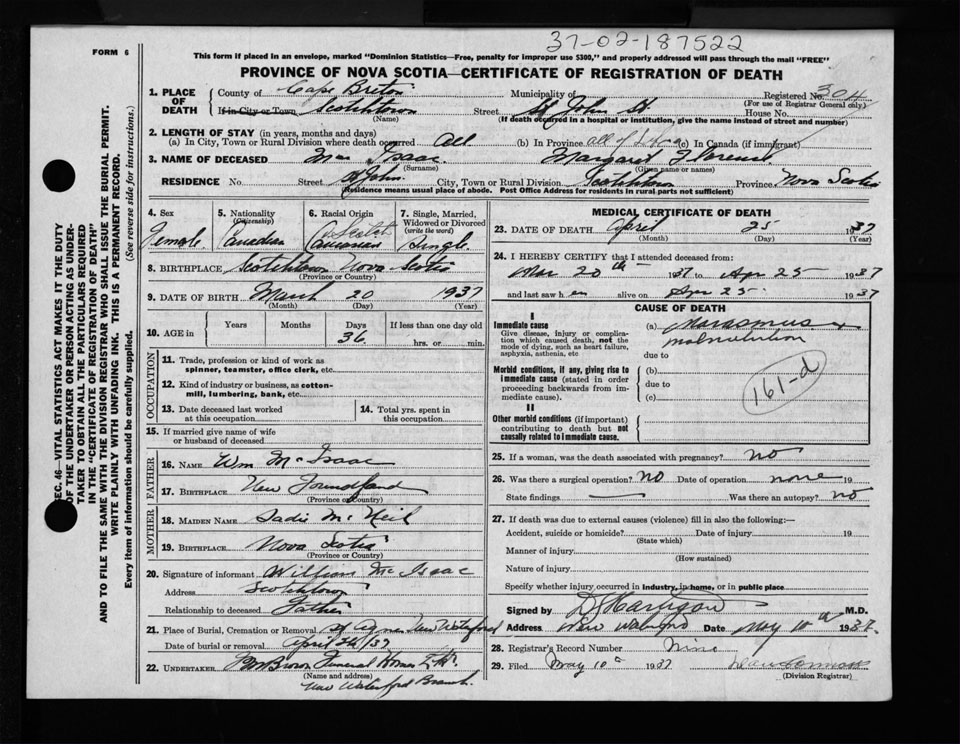 37-02-187522
FORM 6
This form if placed in an envelope, marked "Dominion Statistics—Free, penalty for improper use $300," and properly addressed will pass through the mail "FREE"
PROVINCE OF NOVA SCOTIA—CERTIFICATE OF REGISTRATION OF DEATH
1. PLACE OF DEATH
County of Cape Breton Municipality of Registered No. 304
(For use of Registrar General only.)
If in City or Town Scotchtown Street St John St House No.
(Name) (If death occurred in a hospital or institution, give the name instead of street and number)
2. LENGTH OF STAY (in years, months and days)
(a) In City, Town or Rural Division where death occurred All (b) In Province all of life (c) In Canada (if immigrant)
3. NAME OF DECEASED Mac Isaac Margaret Florence
(Surname) (Given name or names)
RESIDENCE No. Street St John City, Town or Rural Division Scotchtown Province Nova Scotia
(Residence means usual place of abode. Post Office Address for residents in rural parts not sufficient)
4. Sex Female
5. Nationality (Citizenship) Canadian
6. Racial Origin Scotch
7. Single, Married, Widowed or Divorced (write the word) Single
8. BIRTHPLACE Scotchtown Nova Scotia
(Province or Country)
9. DATE OF BIRTH March 20 1937
(Month) (Day) (Year)
10. AGE in Years Months Days 36 If less than one day old hrs. or min.
OCCUPATION
11. Trade, profession or kind of work as spinner, teamster, office clerk, etc.
12. Kind of industry or business, as cotton-mill, lumbering, bank, etc.
13. Date deceased last worked at this occupation
14. Total yrs. spent in this occupation
15. If married give name of wife or husband of deceased
FATHER
16. NAME Wm Mc Isaac
17. BIRTHPLACE New Foundland
(Province or Country)
MOTHER
18. MAIDEN NAME Sadie Mc Neil
19. BIRTHPLACE Nova Scotia
(Province or Country)
20. Signature of informant William Mc Isaac
Address Scotchtown
Relationship to deceased Father
21. Place of Burial, Cremation or Removal St Agnes New Waterford
Date of burial or removal April 26/37
22. UNDERTAKER Funeral Home
(Name and address)
New Waterford Branch
MEDICAL CERTIFICATE OF DEATH
23. DATE OF DEATH April 25 1937
(Month) (Day) (Year)
24. I HEREBY CERTIFY that I attended deceased from:
Mar 20th 1937 to Apr 25 1937
and last saw h er alive on Apr 25 1937
CAUSE OF DEATH
I
Immediate cause
Give disease, injury or complication which caused death, not the mode of dying, such as heart failure, asphyxia, asthenia, etc
(a) Marasmus
malnutrition
due to
Morbid conditions, if any, giving rise to immediate cause (stated in order proceeding backwards from immediate cause).
(b)
due to
(c)
161-d
II
Other morbid conditions (if important) contributing to death but not causally related to immediate cause.
25. If a woman, was the death associated with pregnancy? No
26. Was there a surgical operation? No Date of operation none 19
State findings Was there an autopsy? No
27. If death was due to external causes (violence) fill in also the following:—
Accident, suicide or homicide? Date of injury 19
(State which)
Manner of injury
(How sustained)
Nature of injury
Specify whether injury occurred in industry, in home, or in public place
Signed by M.D.
Address New Waterford Date May 10th 1937
28. Registrar's Record Number Nine
29. Filed May 10th 1937
(Division Registrar)
SEC. 46—VITAL STATISTICS ACT MAKES IT THE DUTY
OF THE UNDERTAKER OR PERSON ACTING AS UNDER-
TAKER TO OBTAIN ALL THE PARTICULARS REQUIRED
IN THE "CERTIFICATE OF REGISTRATION OF DEATH"
AND TO FILE THE SAME WITH THE DIVISION REGISTRAR WHO SHALL ISSUE THE BURIAL PERMIT.
WRITE PLAINLY WITH UNFADING INK. THIS IS A PERMANENT RECORD.
Every item of information should be carefully supplied. (See reverse side for instructions.)